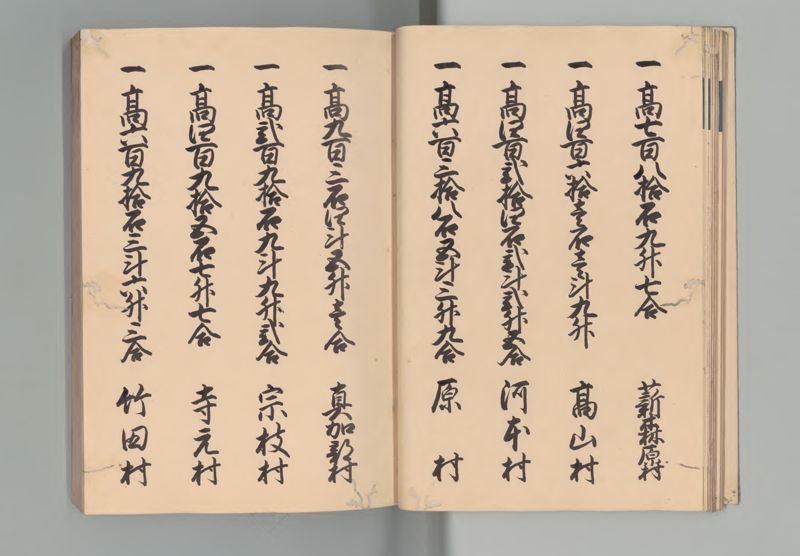 一 高七百八拾石九升七合 薪森原村
一 高四百六拾壱石壱斗九升 高山村
一 高四百弐拾四石弐斗弐升五合 河本村
一 高六百三拾八石五斗三升九合 原村
一 高九百三石四斗五升壱合 真加部村
一 高弐百九拾石九斗九升弐合 宗枝村
一 高四百九拾五石七升七合 寺元村
一 高六百九拾石三斗六升三合 竹田村